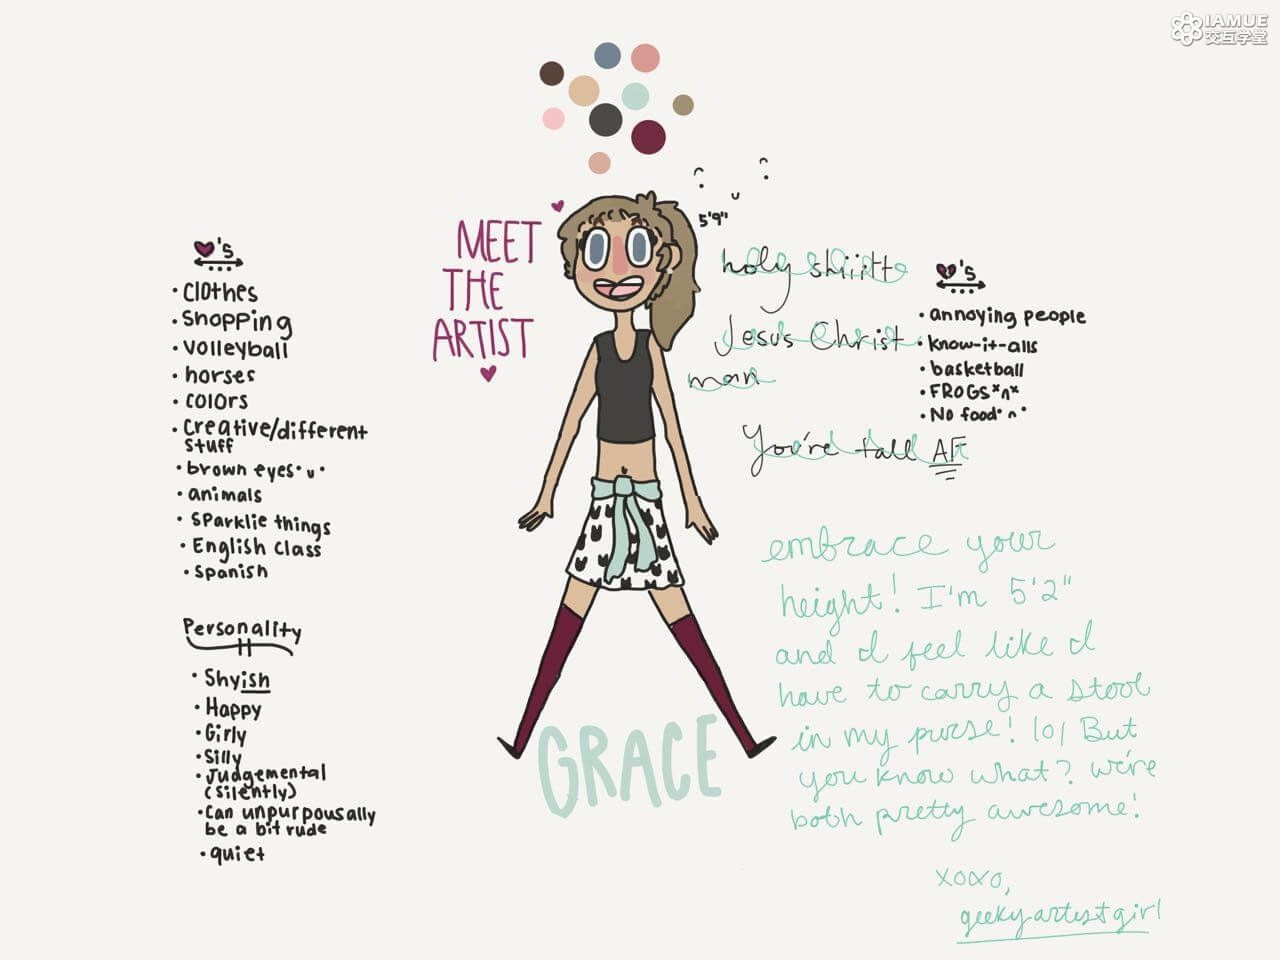 IAMUE
交互学堂
MEET
THE
ARTIST
5'9"
♥'s
• Clothes
• Shopping
• volleyball
• horses
• colors
• Creative/different
stuff
• brown eyes • u •
• animals
• Sparklie things
• English Class
• Spanish
Personality
• Shyish
• Happy
• Girly
• Silly
• Judgemental
(silently)
• Can unpurpousally
be a bit rude
• quiet
holy shiitt
Jesus Christ
man
You're tall AF
♥'s
• annoying people
• know-it-alls
• basketball
• FROGS *n*
• No food • n •
embrace your
height! I'm 5'2"
and I feel like I
have to carry a stool
in my purse! lol But
you know what? we're
both pretty awesome!
xoxo,
geekyartistgirl
GRACE